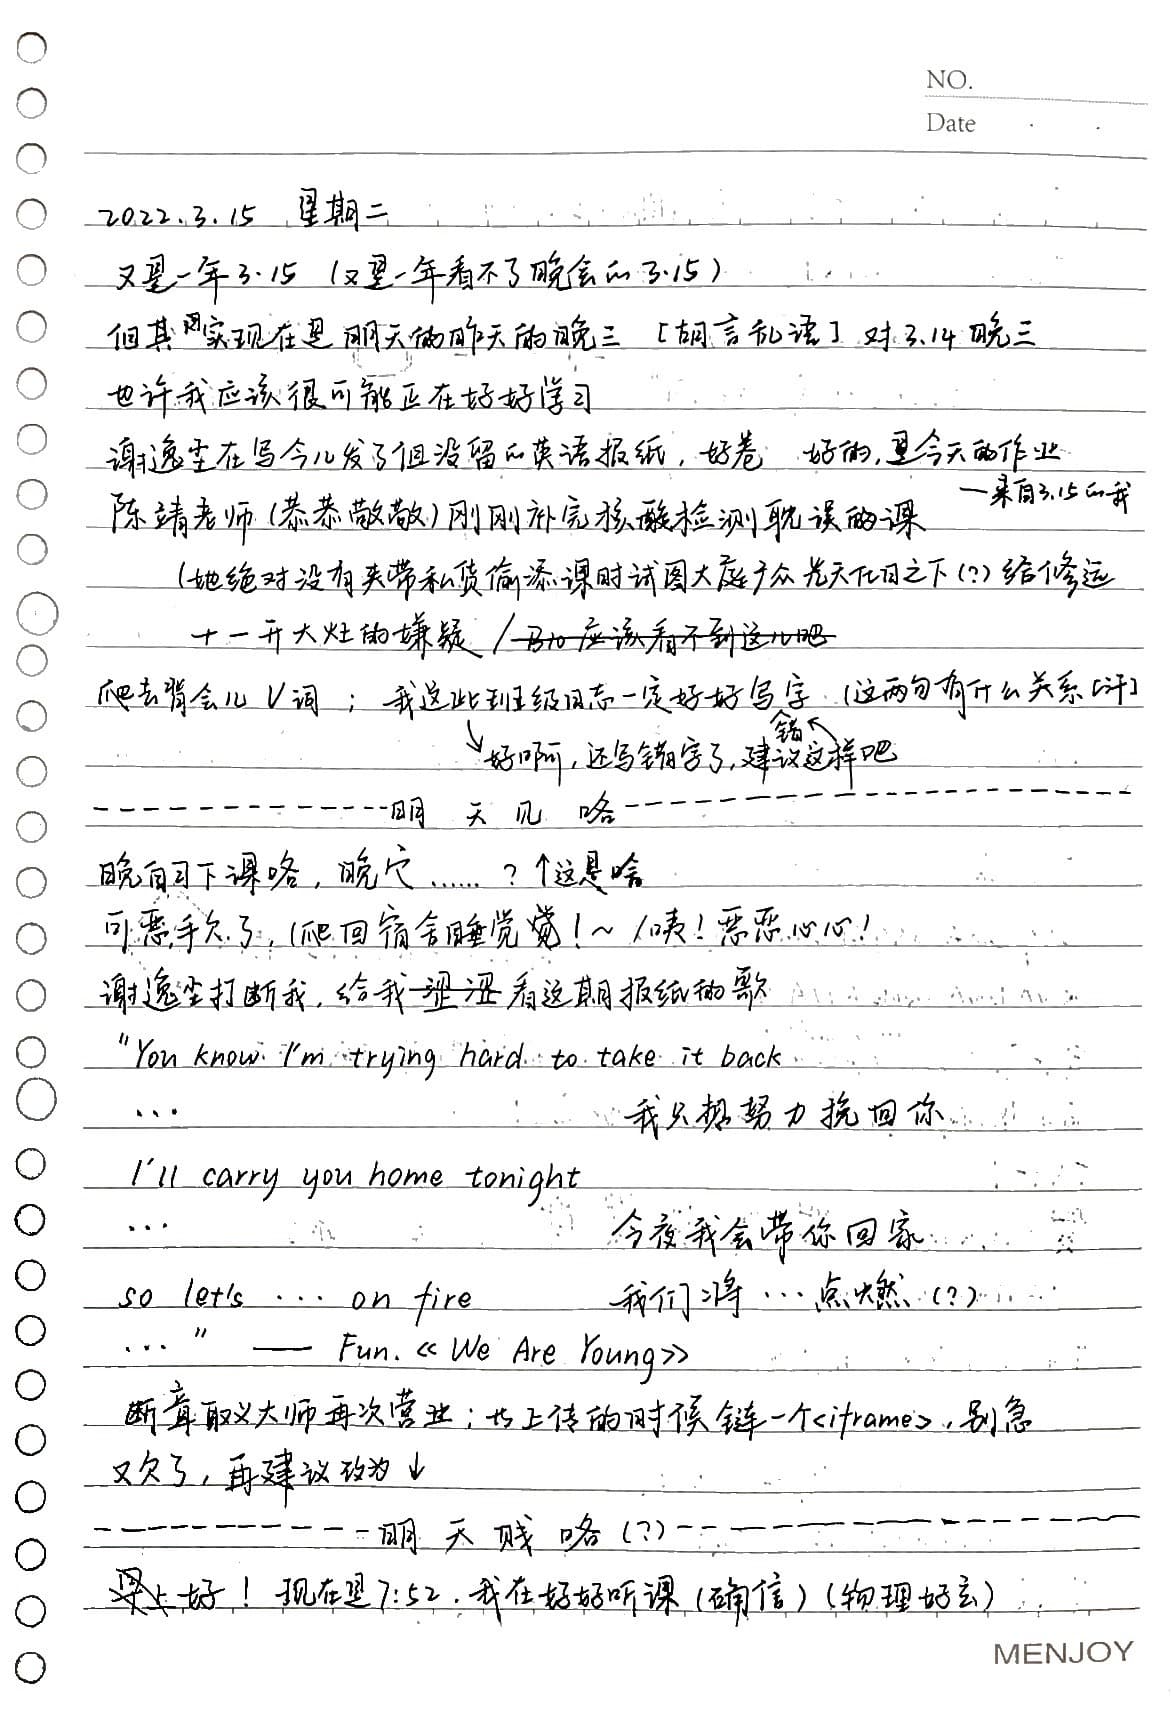 NO.
Date
2022.3.15 星期二
又是一年3.15 (又是一年看不了晚会的3.15)
但其实现在是明天的昨天的晚三 [胡言乱语] 对3.14晚三
也许我应该很可能正在好好学习
谢逸尘在写今儿发了但没留的英语报纸，好卷 好的，是今天的作业
—来自3.15的我
陈靖老师(恭恭敬敬)刚刚补完核酸检测耽误的课
(她绝对没有夹带私货偷添课时试图大庭广众光天化日之下(?)给修远
十一开大灶的嫌疑 / 应该看不到这儿吧
爬去背会儿V词；我这些班级日志一定好好写字 (这两句有什么关系[汗]
错
好啊，还写错字了，建议这样吧
明天见咯
晚自习下课咯，晚穴……？↑这是啥
可恶，手欠了，(爬回宿舍睡觉觉！~/咦！恶恶心心！
谢逸尘打断我，给我涩涩看这期报纸的歌
"You know I'm trying hard to take it back
...
我只想努力挽回你
I'll carry you home tonight
...
今夜我会带你回家
so let's ... on fire 我们将…点燃(?)
..." —— Fun.《We Are Young》
断章取义大师再次营业；上传的时候链一个<iframe>，别急
又欠了，再建议改为↓
明天贱咯(?)
早上好！现在是7:52，我在好好听课(确信)(物理好玄)
MENJOY